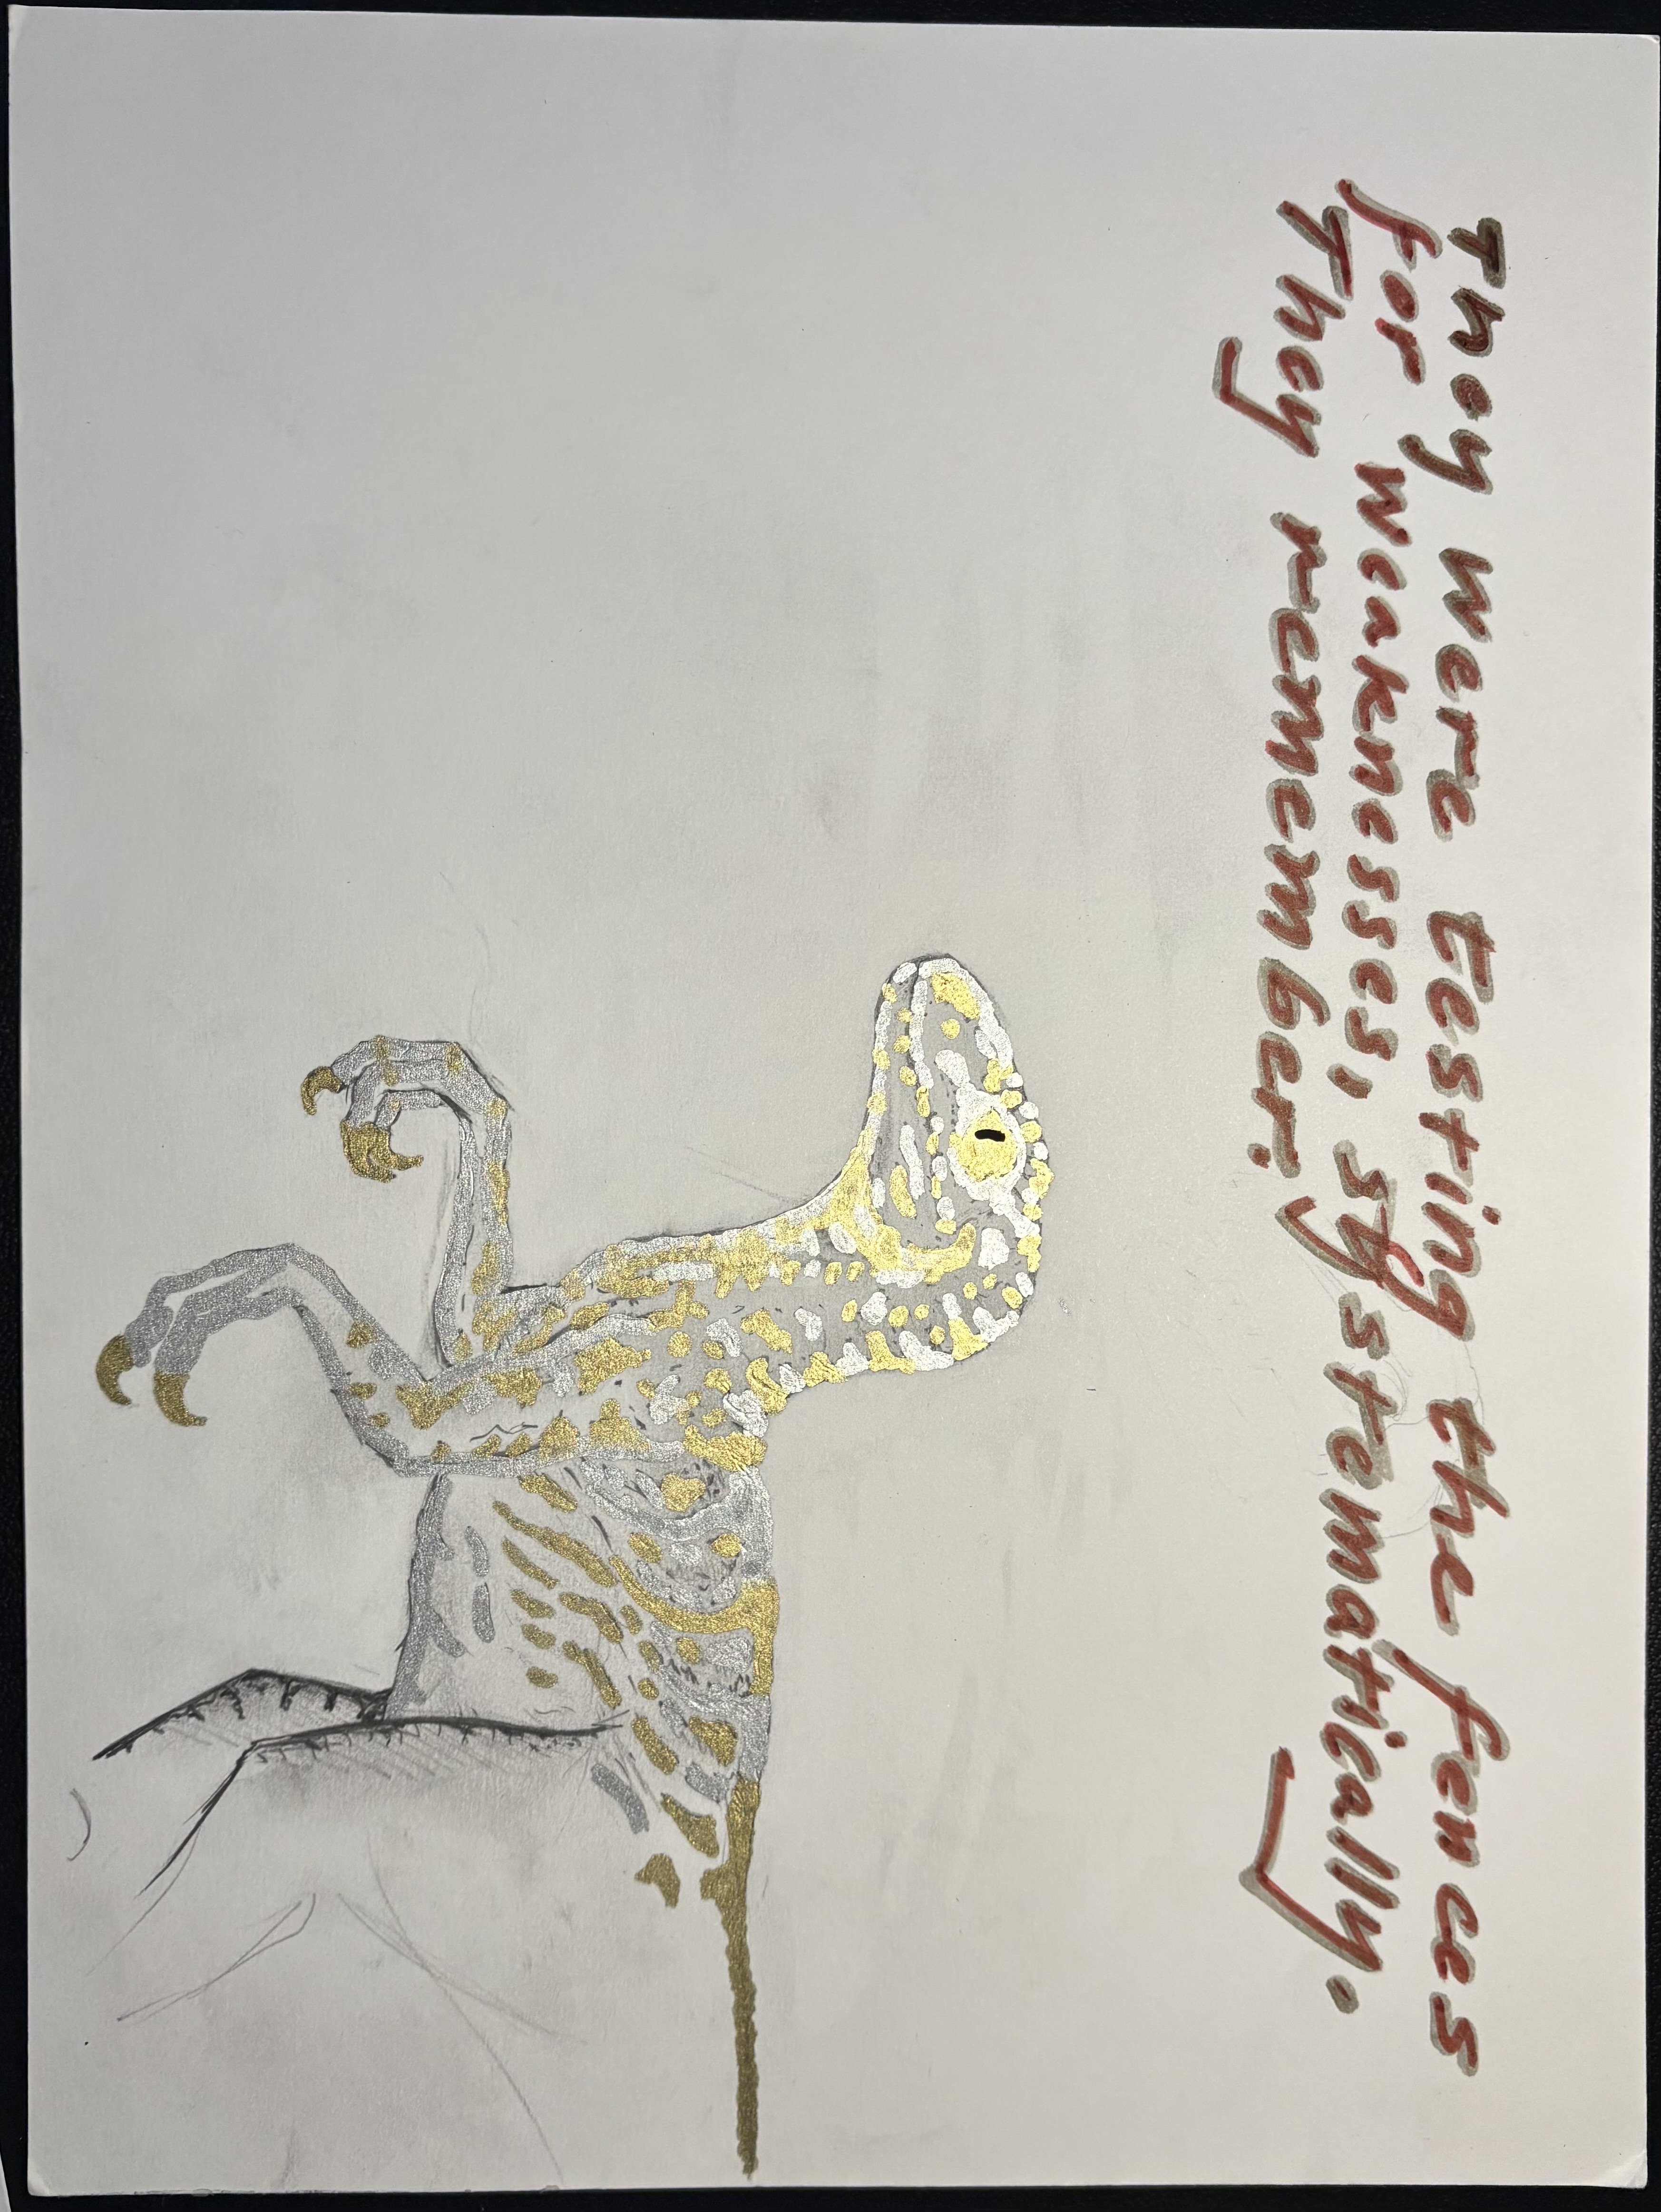 They were testing the fences
for weaknesses, systematically.
They remember.